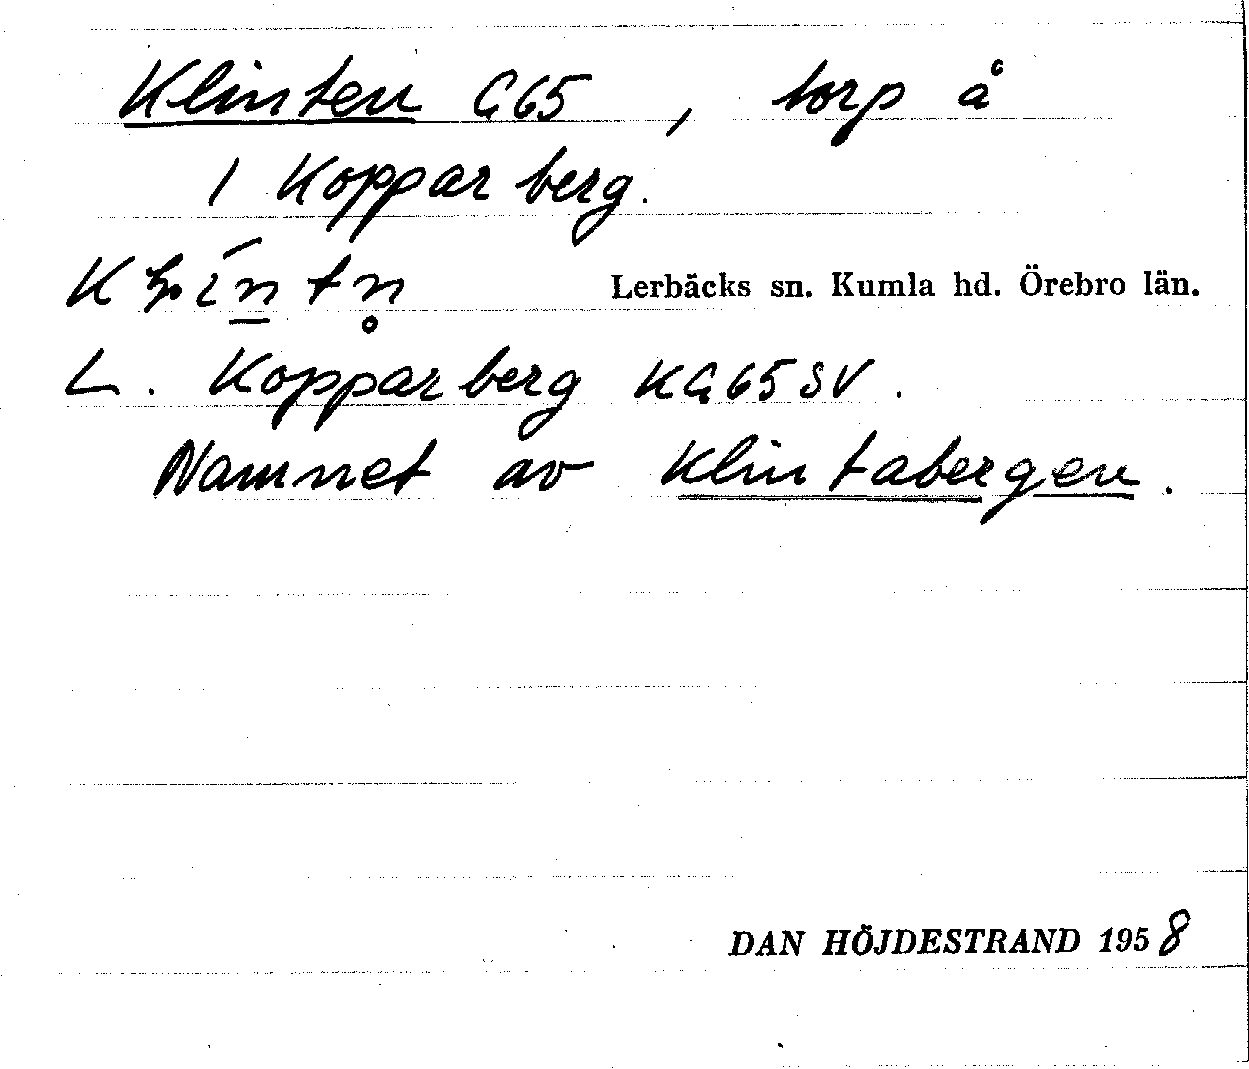 Klinten G65, torp å
1 Kopparberg.
Lerbäcks sn. Kumla hd. Örebro län.
L. Kopparberg KG65SV.
Namnet av Klintabergen.
DAN HÖJDESTRAND 1958